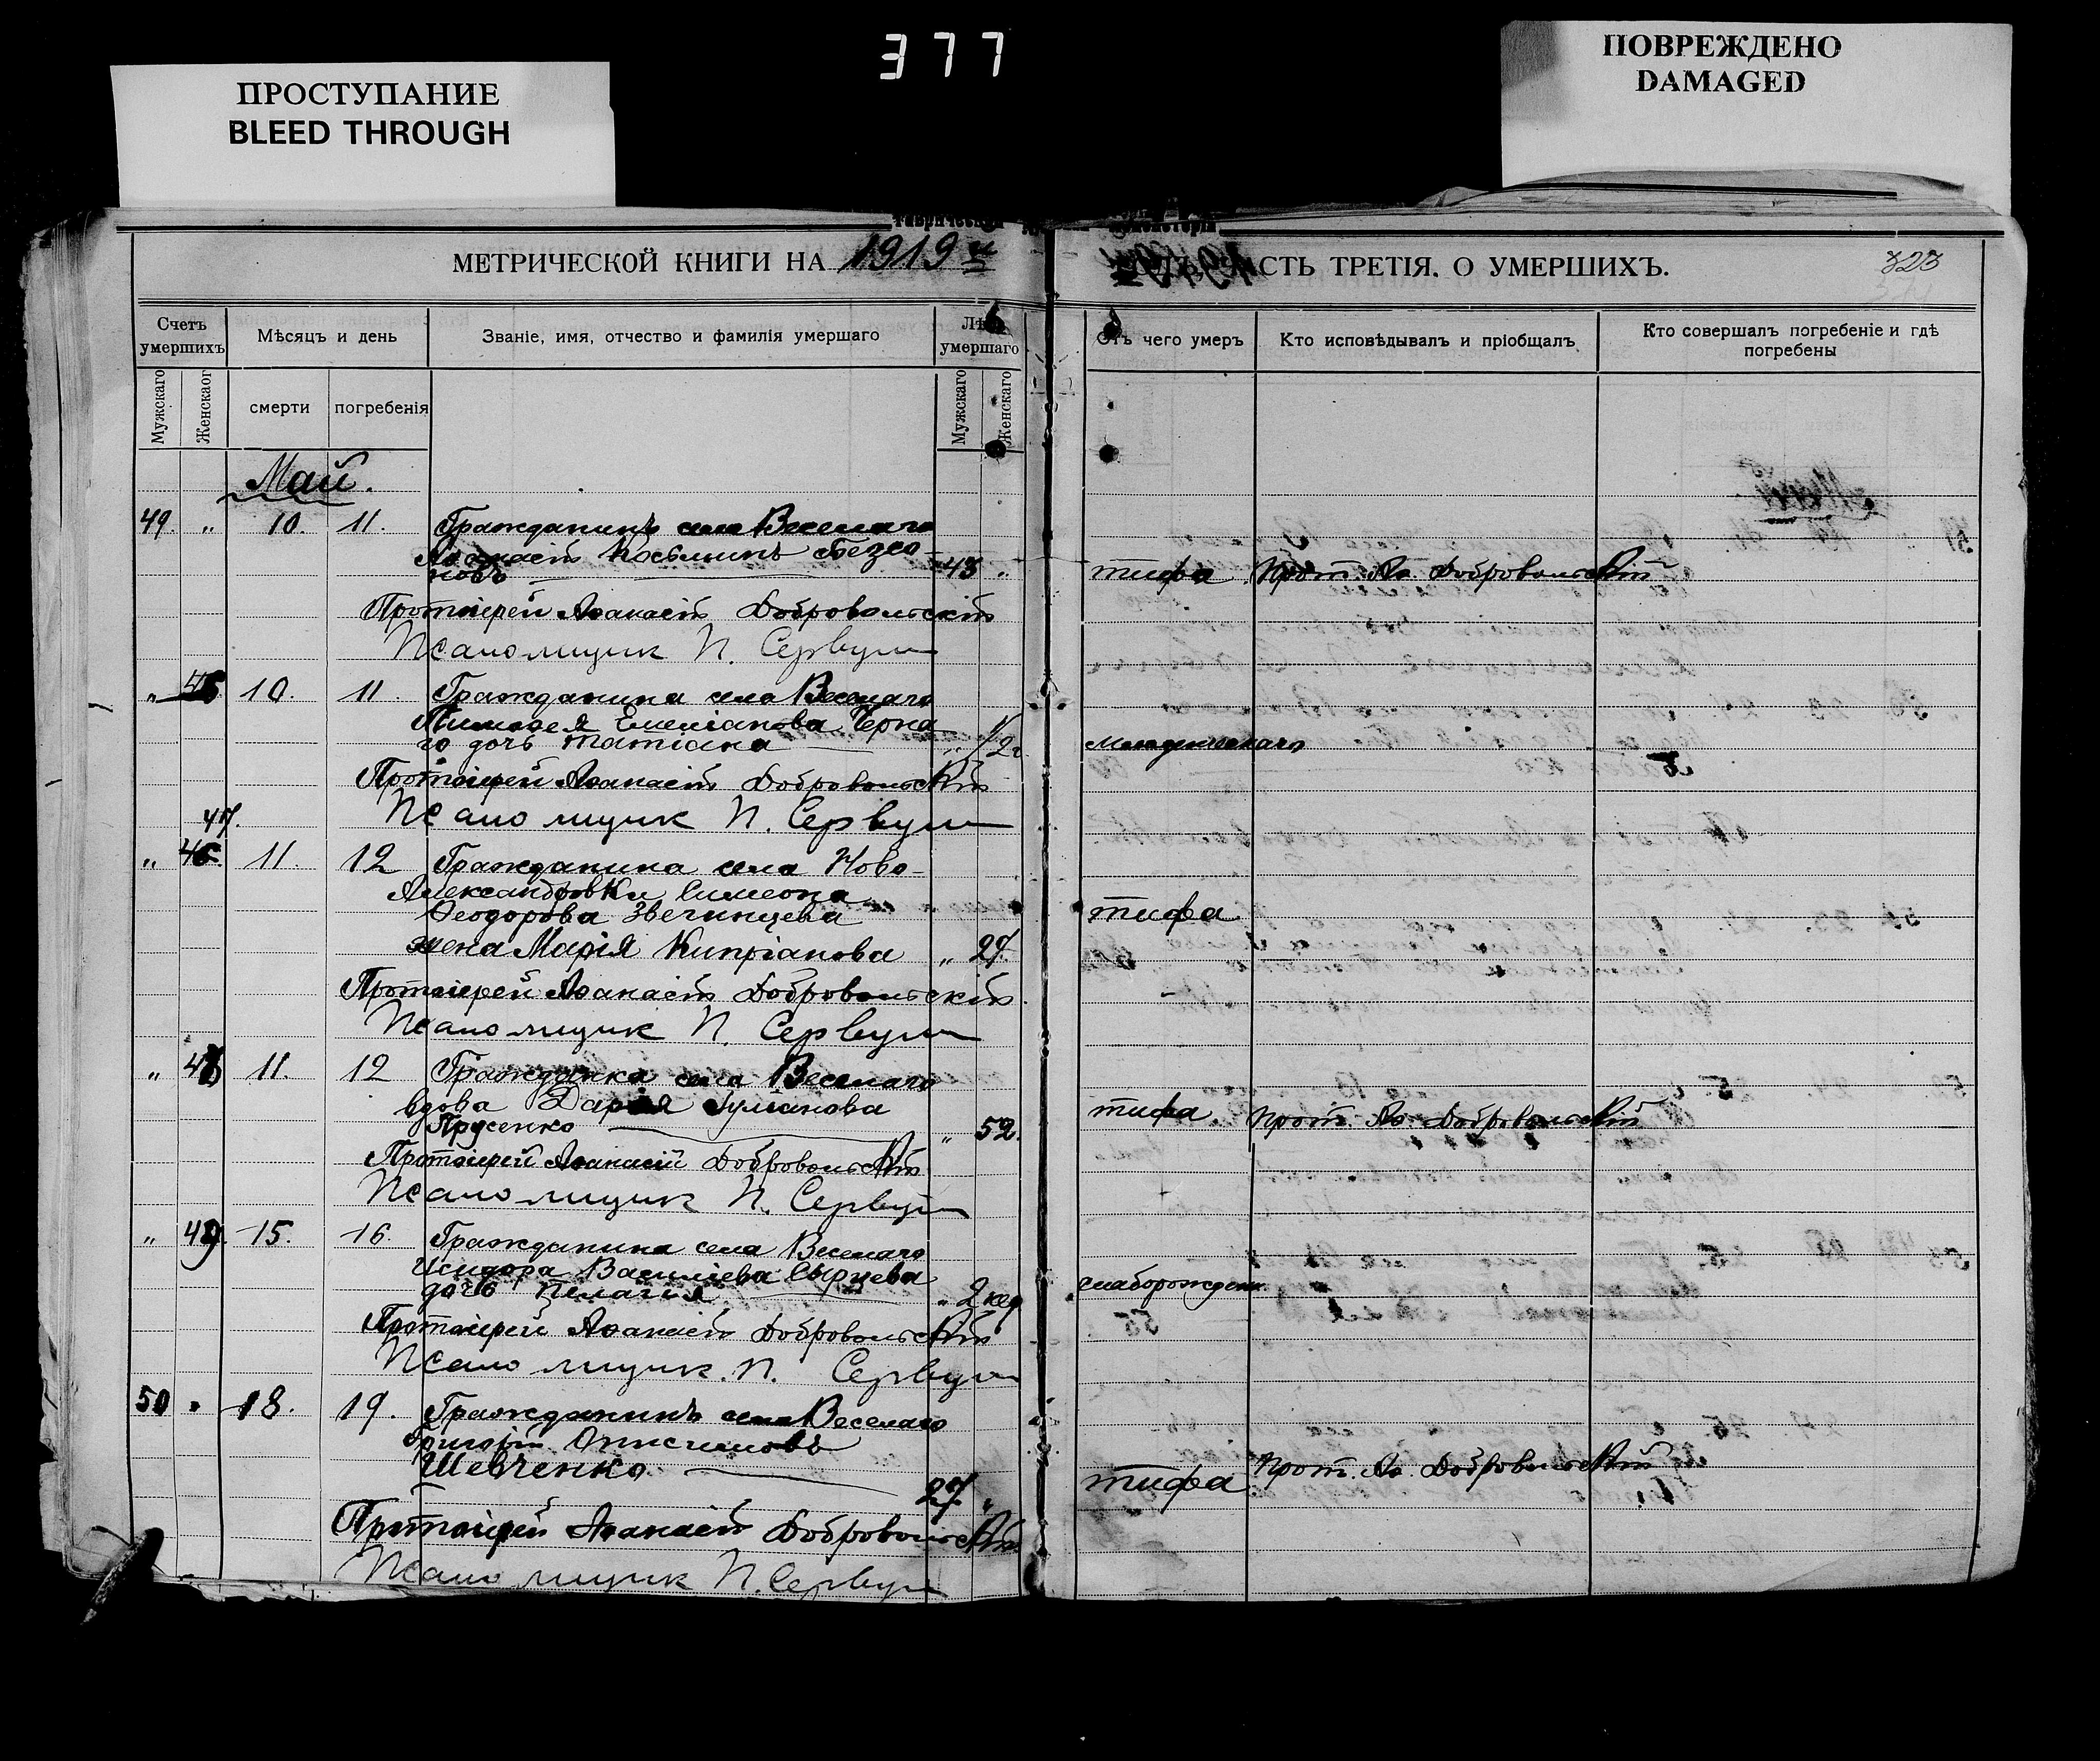 377
ПРОСТУПАНИЕ
BLEED THROUGH
ПОВРЕЖДЕНО
DAMAGED
МЕТРИЧЕСКОЙ КНИГИ НА 1919 й
СТЬ ТРЕТІЯ. О УМЕРШИХЪ.
323
Счетъ умершихъ
Мѣсяцъ и день
Званіе, имя, отчество и фамилія умершаго
умершаго
чего умеръ
Кто исповѣдывалъ и пріобщалъ
Кто совершалъ погребеніе и гдѣ погребены
Мужскаго
Женскаог
смерти
погребенія
Мужскаго
Женскаго
Май.
49. " 10. 11. Гражданинъ села Веселаго
Аѳанасій Косьминъ Безсо-
новъ 43 " тифа Прот. Аѳ. Добровольскій
Протоіерей Аѳанасій Добровольскій
Псаломщик П. Сервули
" 10. 11. Гражданина села Веселаго
Тимоѳея Емеліанова Черна
го дочь Татіана " 1/2 г младенческаго
Протоіерей Аѳанасій Добровольскій
Псаломщик П. Сервули
47.
" 11. 12 Гражданина села Ново-
Александровки Симеона
Ѳеодорова Звегинцева тифа
жена Марія Кипріанова " 27.
Протоіерей Аѳанасій Добровольскій
Псаломщик П. Сервули
" 48 11. 12 Гражданка села Веселаго
вдова Дарія Іуліанова тифа Прот. Аѳ. Добровольскій
" 52.
Протоіерей Аѳанасій Добровольскій
Псаломщик П. Сервули
" 49. 15. 16. Гражданина села Веселаго
Исидора Василіева Сырцева
дочь Пелагія " 2 нед
Протоіерей Аѳанасій Добровольскій
Псаломщик. П. Сервули
50 " 18. 19. Гражданинъ села Веселаго
Григорій Онисимовъ
Шевченко. 27. " тифа Прот. Аѳ. Добровольскій
Протоіерей Аѳанасій Добровольскій
Псаломщик П. Сервули